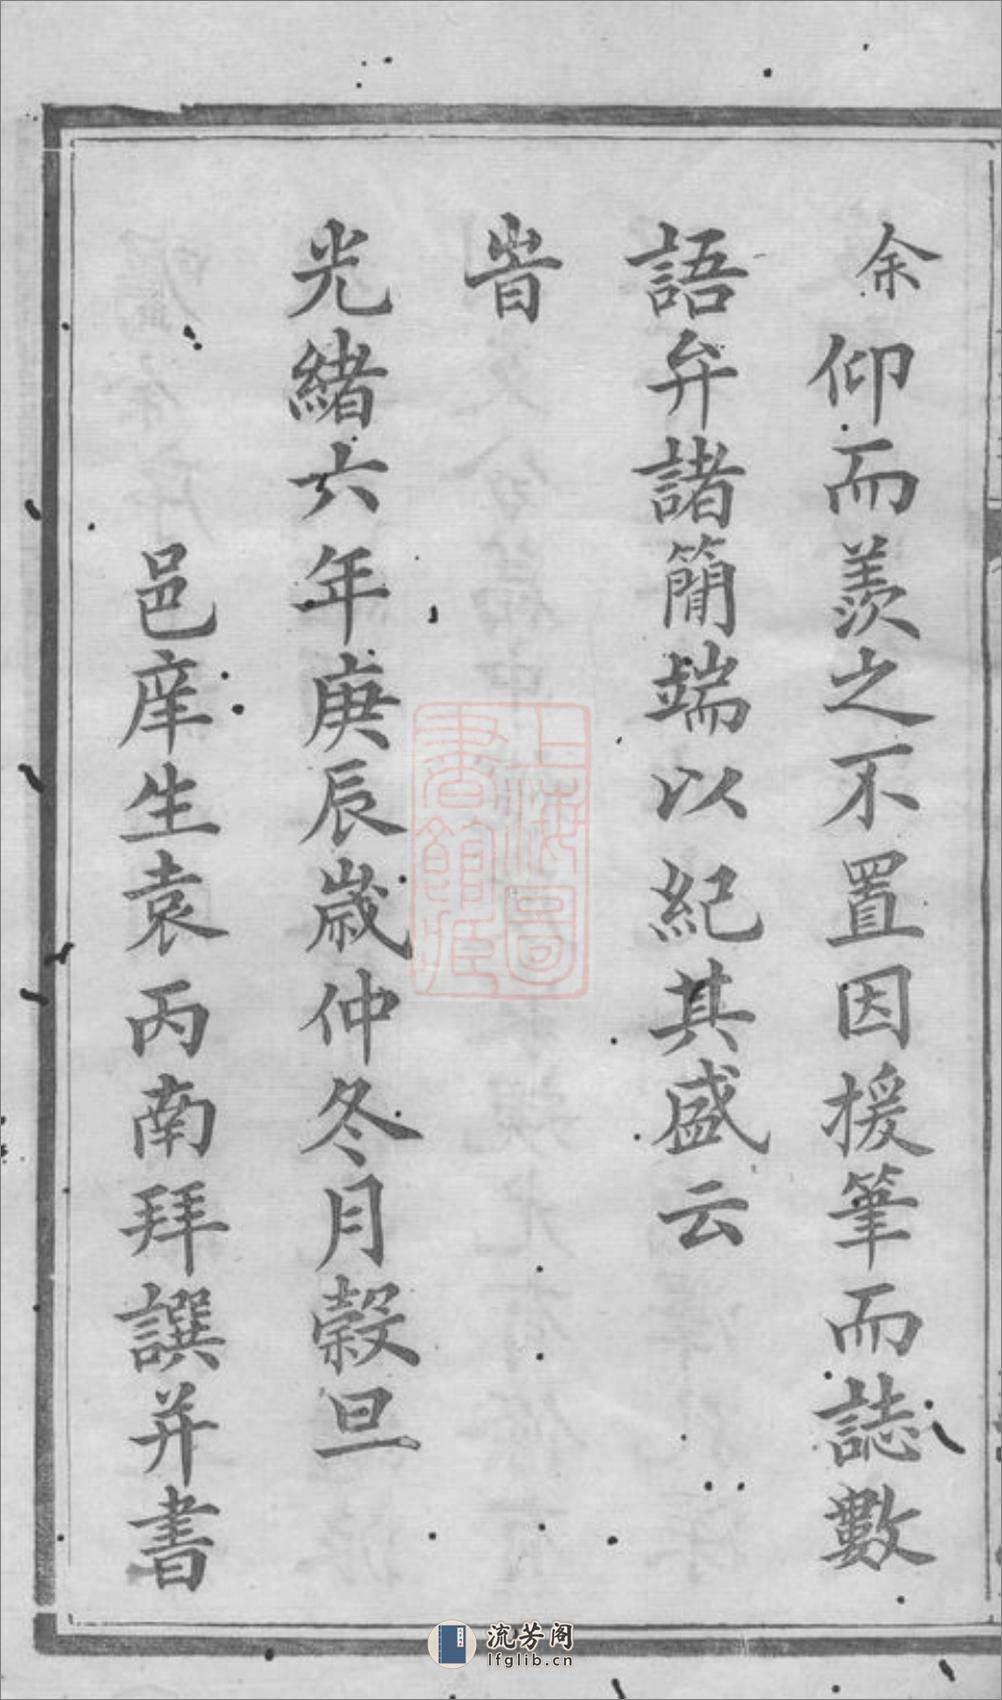 余仰而羨之不置因援筆而誌數
語弁諸簡端以紀其盛云
旹
光緒六年庚辰歲仲冬月榖旦
邑庠生袁丙南拜譔并書
上海圖
書館藏
流芳阁
lfglib.cn